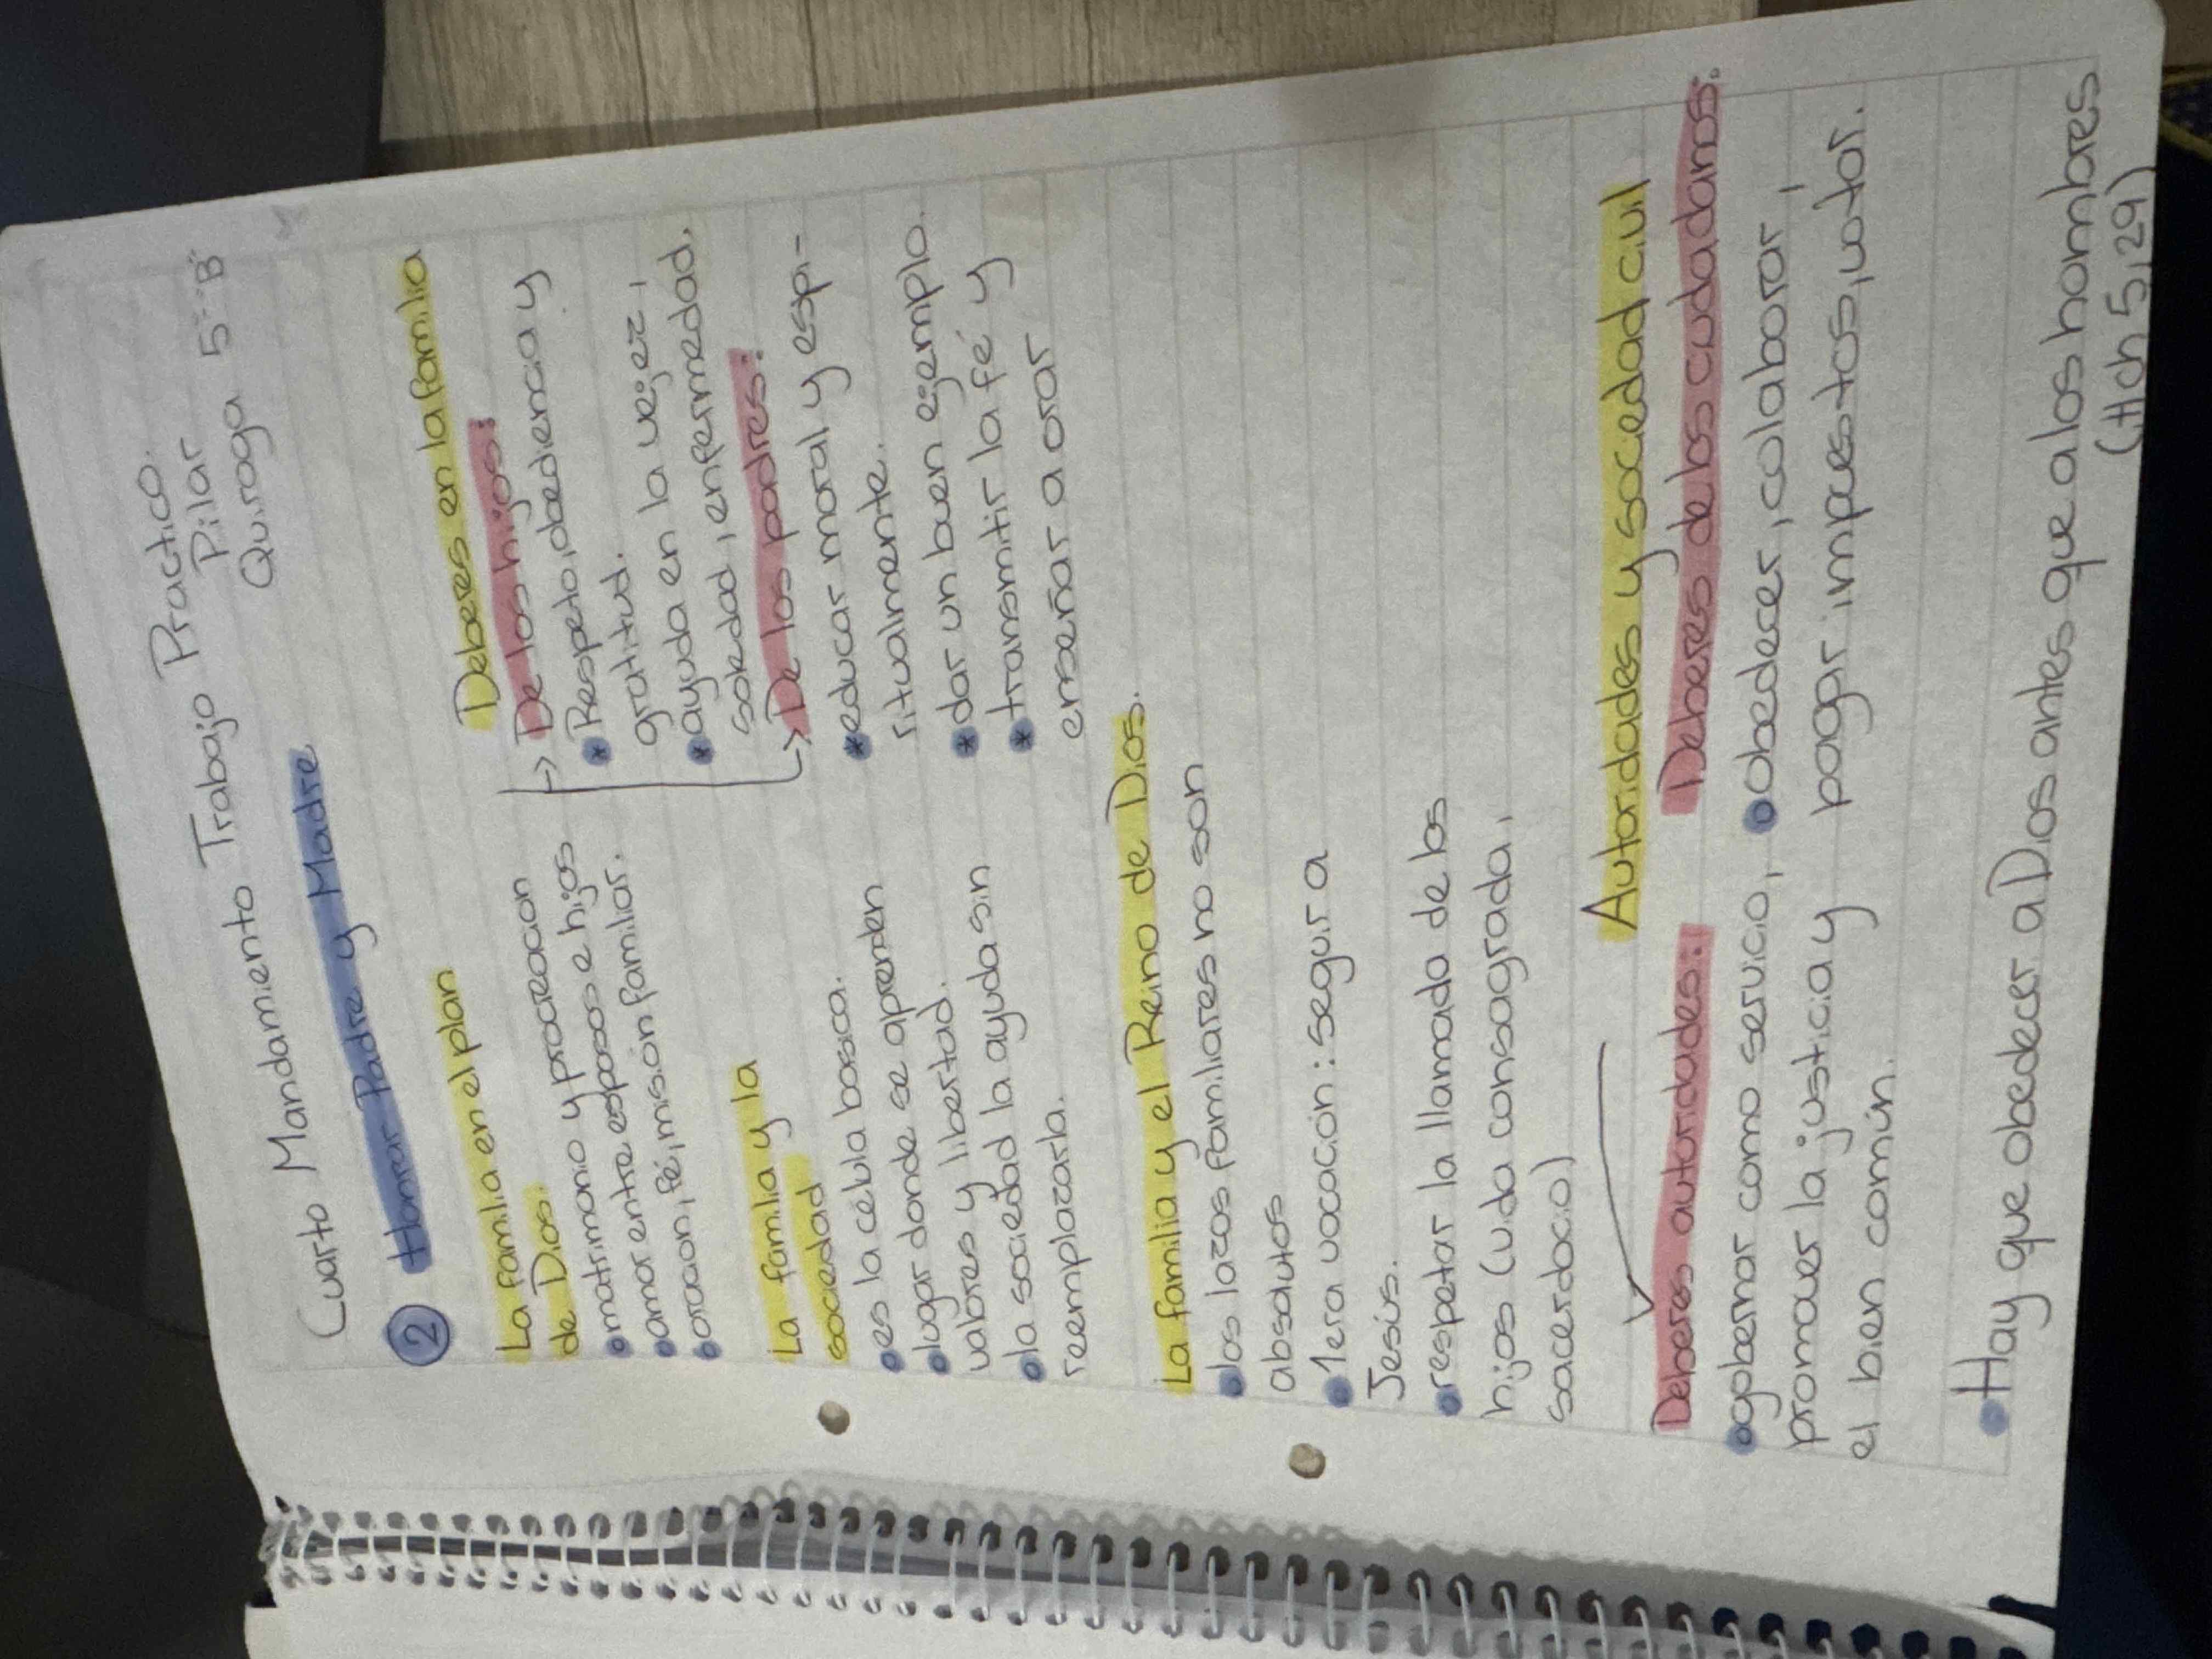 Trabajo Practico.
Cuarto Mandamiento
Pilar
Quiroga 5º"B"
② Honrar Padre y Madre
La familia en el plan
de Dios.
matrimonio y procreacion
amor entre esposos e hijos
oracion, fé, misión familiar.
La familia y la
sociedad
es la célula basica.
lugar donde se aprenden
valores y libertad.
la sociedad la ayuda sin
reemplazarla.
Deberes en la familia
→ De los hijos:
* Respeto, obediencia y
gratitud.
* ayuda en la vejez,
soledad, enfermedad.
→ De los padres:
* educar moral y espi-
ritualmente.
* dar un buen ejemplo.
* transmitir la fé y
enseñar a orar
La familia y el Reino de Dios.
los lazos familiares no son
absolutos
1era vocación: seguir a
Jesús.
respetar la llamada de los
hijos (vida consagrada,
sacerdocio)
Autoridades y sociedad civil
Deberes autoridades:
gobernar como servicio,
promover la justicia y
el bien común.
Deberes de los cuidadanos:
obedecer, colaborar,
pagar impuestos, votar.
Hay que obedecer a Dios antes que a los hombres
(Hch 5,29)